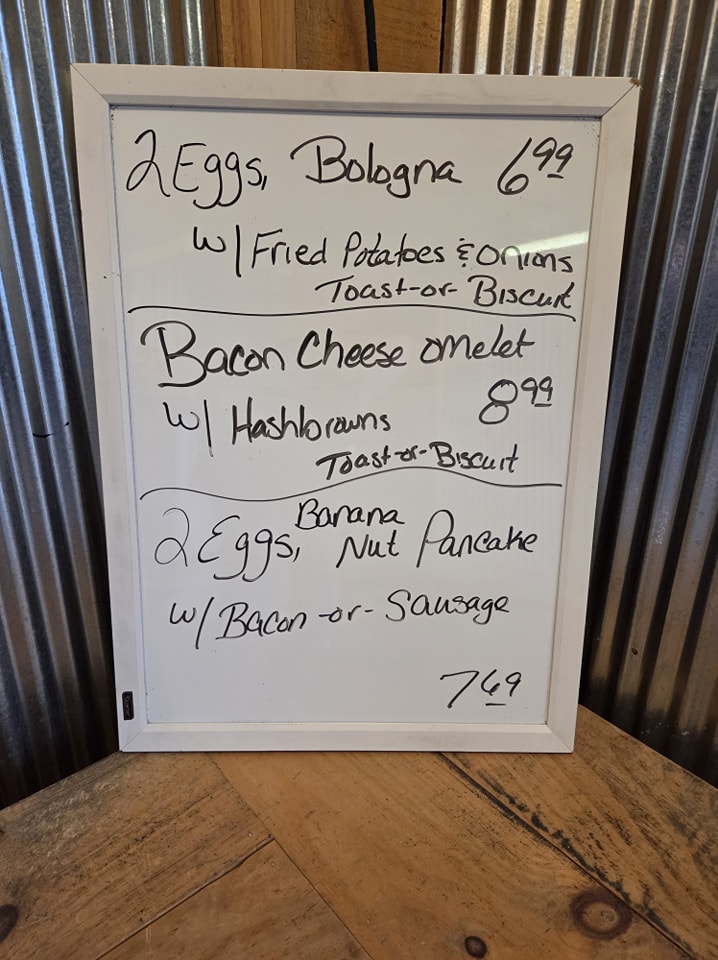 2 Eggs, Bologna 6 99
w/ Fried Potatoes & Onions
Toast-or-Biscuit
Bacon Cheese omelet
w/ Hashbrowns 8 99
Toast-or-Biscuit
2 Eggs, Banana
Nut Pancake
w/ Bacon-or-Sausage
7 69